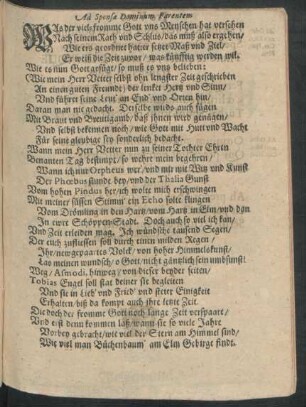 Ad Sponsæ Dominum Parentem
WAs der viel fromme Gott vns Menschen hat versehen
Nach seinem Rath vnd Schlus/ das muß also ergehen/
Wie ers geordnet hat/er setzet Maß vnd Ziel/
Er weiß die Zeit zuvor/ was künfftig werden wil.
Wie es nun Gott gefügt/ so muß es vns belieben:
Wie mein Herr Vetter selbst ohn längster Zeit geschrieben
An einen theuren Freund/ der lencket Hertz vnd Sinn/
Vnd führet seine Leut/ an End/ vnd Ortzu hin/
Daran man nie gedacht. Derselbe würds auch fügen
Mit Braut vnd Breutigamb/ daß ihnen wird genügen/
Vnd selbst bekennen noch/ wie Gott mit Hutt vnd Wacht
Für seine gleubige sey sonderlich bedacht.
Wann mein Herr Vetter nun zu seiner Tochter Ehren
Benanten Tag bestimpt/ so wehre mein begehren/
Wann ich nur Orpheus wer/ vnd mir mit Win vnd Kunst
Der Phœbus stünde bey/ vnd der Thalia Gunst
Vom hohen Pindus her/ ich wolte mich erschwingen
Mit meiner süssen Stimm/ ein Echo solte klingen
Vom Drömling in den Hartz/ vom Hartz in Elm/ vnd dan
In ewre Schöppen-Stadt. Doch auch so viel ich kan/
Vnd Zeit erleiden mag. Ich wündsche tausend Segen/
Der euch zufliessen soll durch einen milden Regen/
Ihr/ newgepaartes Volck/ von hoher Himmelskunst/
Las meinen wundsch/ o Gott/ nicht gäntzlich seyn umbsunst
Weg/ Asmodi, hinweg/ von dieser beyder seiten/
Tobias Engel soll stat deiner sie begleiten
Vnd sie in Lieb' vnd Fried' vnd steter Einigkeit
Erhalten/ biß da kompt auch ihre letzte Zeit.
Die doch der fromme Gott noch lange Zeit verspaart/
Vnd erst denn kommen laß/ wann sie so viele Jahre
Vorbey gebracht/ wie viel der Stern am Himmel sind/
Wie viel man Büchenbaum' am Elm Gebirge findt.